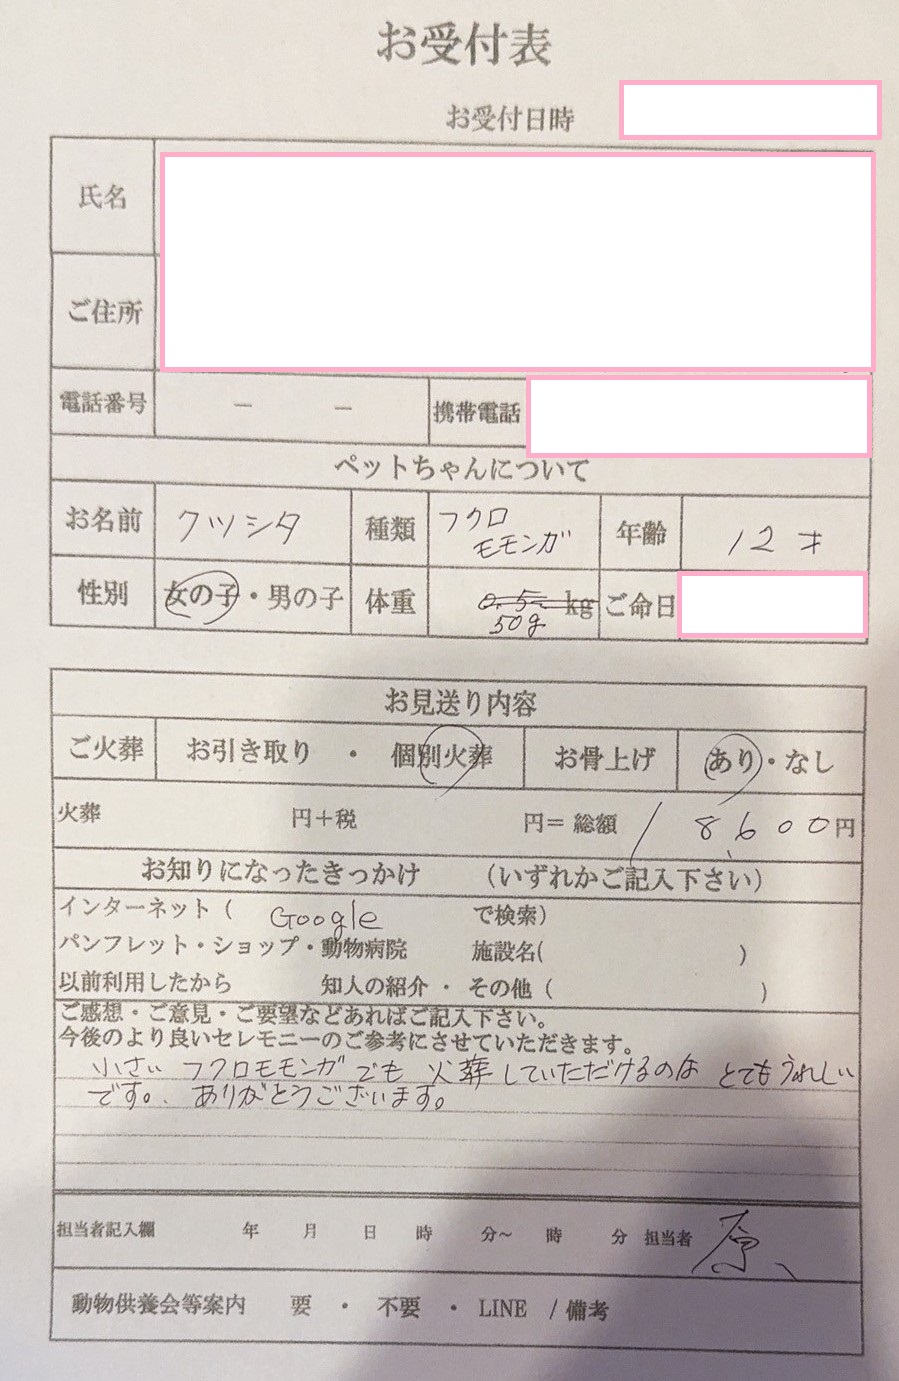 お受付表
お受付日時
氏名
ご住所
電話番号 － － 携帯電話
ペットちゃんについて
お名前 クツシタ 種類 フクロモモンガ 年齢 12才
性別 女の子・男の子 体重 0.5 kg 50g ご命日
お見送り内容
ご火葬 お引き取り ・ 個別火葬 お骨上げ あり・なし
火葬 円＋税 円＝ 総額 18,600円
お知りになったきっかけ （いずれかご記入下さい）
インターネット（ Google で検索）
パンフレット・ショップ・動物病院 施設名( )
以前利用したから 知人の紹介 ・ その他（ ）
ご感想・ご意見・ご要望などあればご記入下さい。
今後のより良いセレモニーのご参考にさせていただきます。
小さい フクロモモンガ でも 火葬していただけるのは とてもうれしい
です。. ありがとうございます。
担当者記入欄 年 月 日 時 分～ 時 分 担当者 原
動物供養会等案内 要 ・ 不要 ・ LINE / 備考